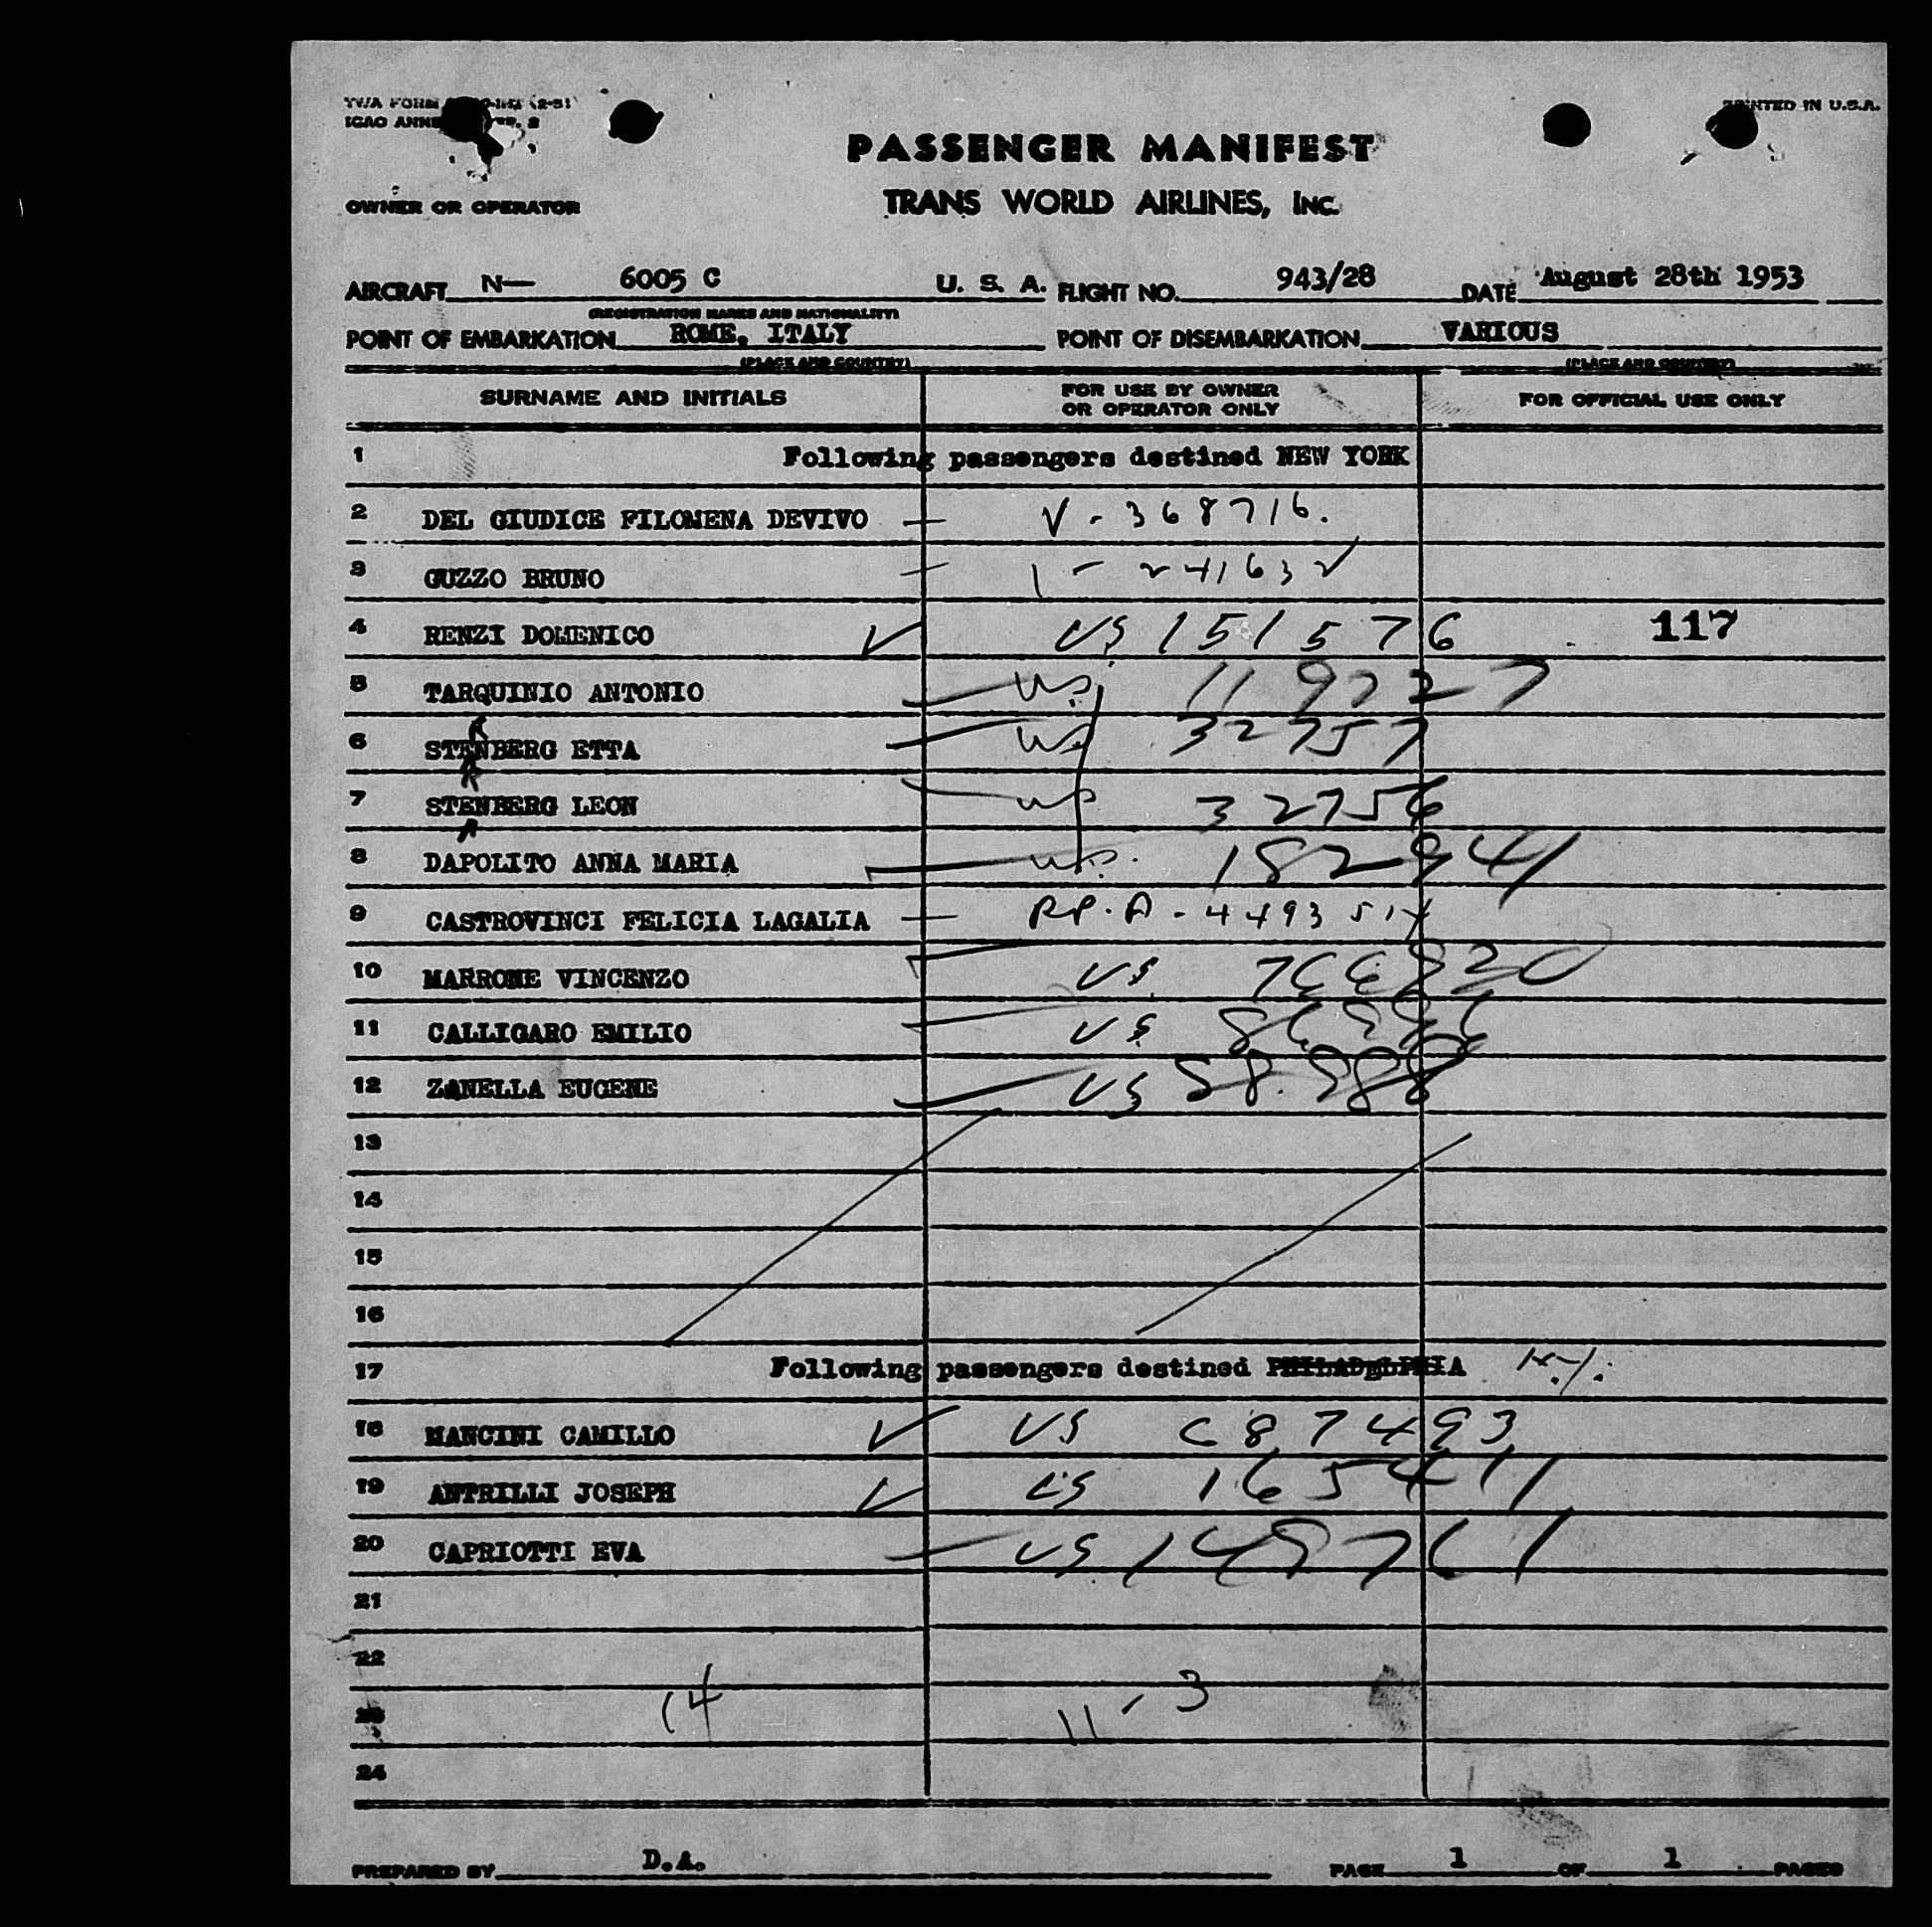 PRINTED IN U.S.A.
PASSENGER MANIFEST
OWNER OR OPERATOR
TRANS WORLD AIRLINES, INC.
AIRCRAFT N— 6005 C U. S. A. FLIGHT NO. 943/28 DATE August 28th 1953
(REGISTRATION MARKS AND NATIONALITY)
POINT OF EMBARKATION ROME, ITALY POINT OF DISEMBARKATION VARIOUS
(PLACE AND COUNTRY) (PLACE AND COUNTRY)
SURNAME AND INITIALS FOR USE BY OWNER OR OPERATOR ONLY FOR OFFICIAL USE ONLY
1 Following passengers destined NEW YORK
2 DEL GIUDICE FILOMENA DEVIVO V - 368716.
3 GUZZO BRUNO
4 RENZI DOMENICO US 151576 117
5 TARQUINIO ANTONIO US 119727
6 STENBERG ETTA US 32757
7 STENBERG LEON US 32756
8 DAPOLITO ANNA MARIA US 182941
9 CASTROVINCI FELICIA LAGALIA
10 MARRONE VINCENZO US
11 CALLIGARO EMILIO US
12 ZANELLA EUGENE US
13
14
15
16
17 Following passengers destined PHILADELPHIA
18 MANCINI CAMILLO US 687493
19 ANTRILLI JOSEPH US 165411
20 CAPRIOTTI EVA US
21
22
23 14 11 - 3
24
PREPARED BY D.A. PAGE 1 OF 1 PAGES